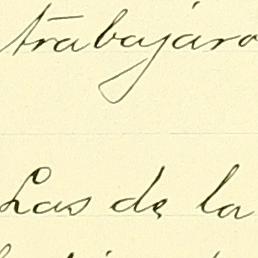 trabajaro
Las de la